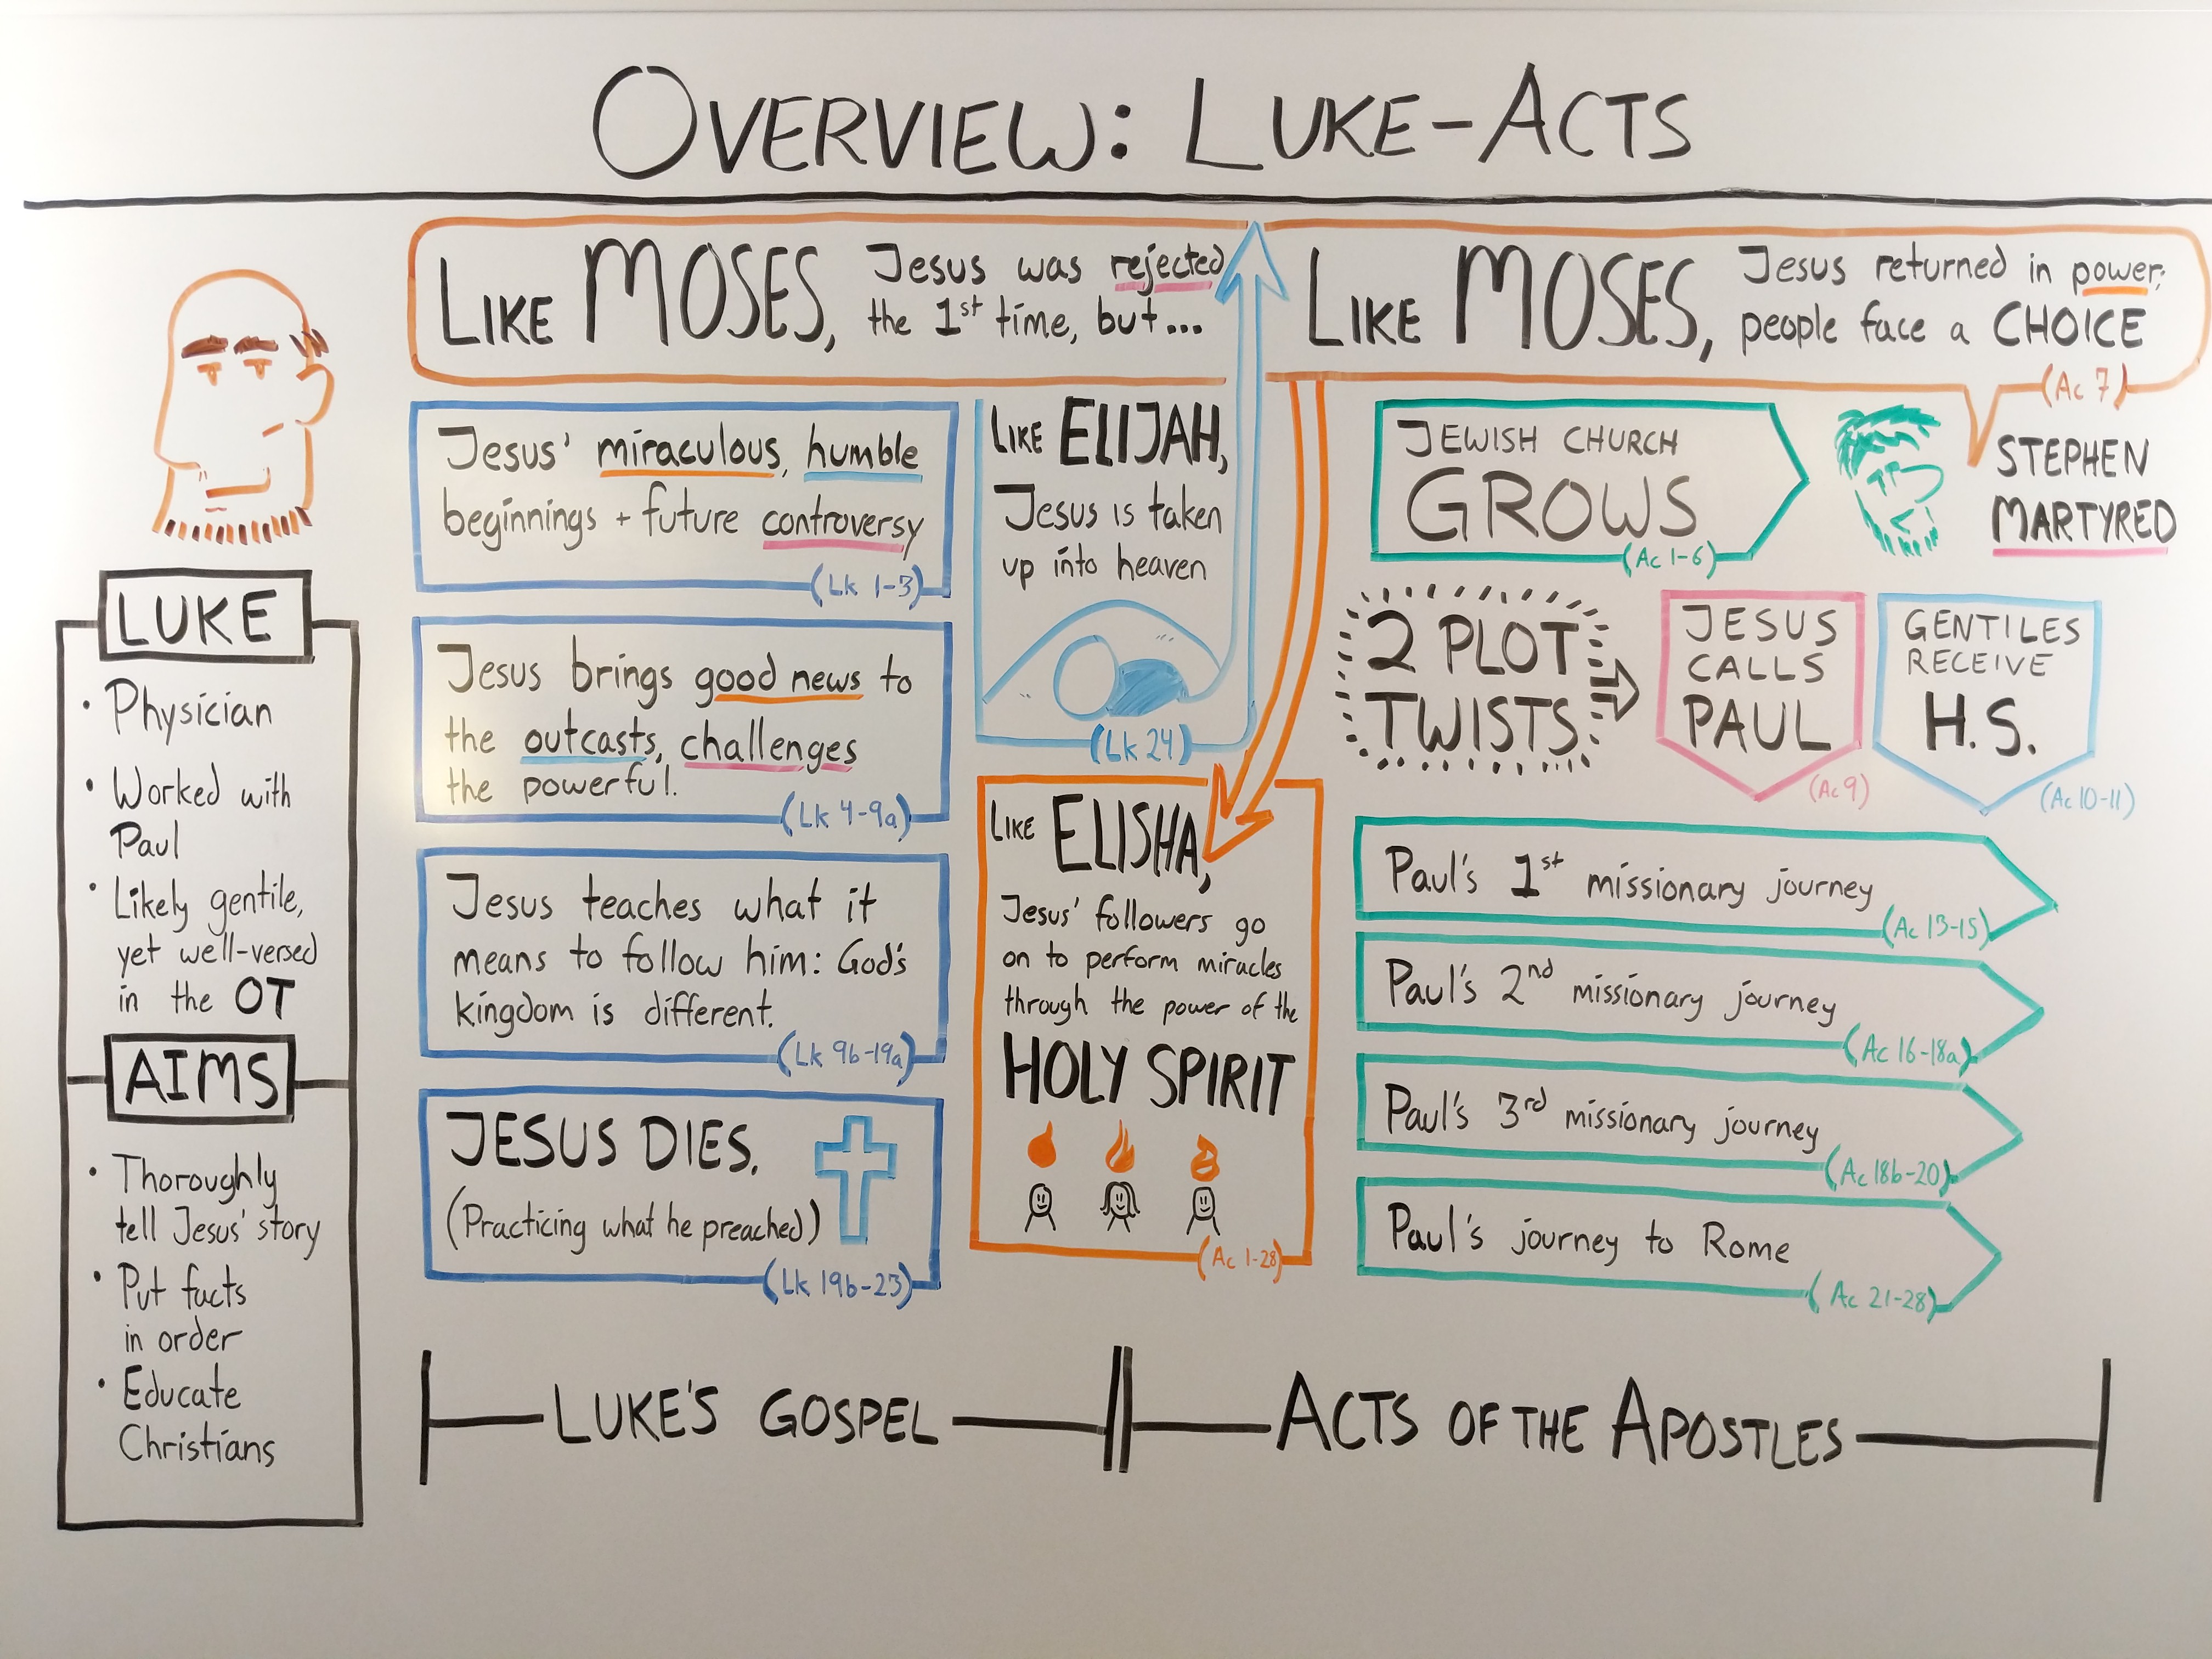 OVERVIEW: LUKE-ACTS
LUKE
• Physician
• Worked with
Paul
• Likely gentile,
yet well-versed
in the OT
AIMS
• Thoroughly
tell Jesus' story
• Put facts
in order
• Educate
Christians
LIKE MOSES, Jesus was rejected
the 1st time, but...
LIKE MOSES, Jesus returned in power;
people face a CHOICE
(Ac 7)
Jesus' miraculous, humble
beginnings + future controversy
(Lk 1-3)
Jesus brings good news to
the outcasts, challenges
the powerful.
(Lk 4-9a)
Jesus teaches what it
means to follow him: God's
kingdom is different.
(Lk 9b-19a)
JESUS DIES.
(Practicing what he preached)
(Lk 19b-23)
LIKE ELIJAH,
Jesus is taken
up into heaven
(Lk 24)
LIKE ELISHA,
Jesus' followers go
on to perform miracles
through the power of the
HOLY SPIRIT
(Ac 1-28)
JEWISH CHURCH
GROWS
(Ac 1-6)
STEPHEN
MARTYRED
2 PLOT
TWISTS
JESUS
CALLS
PAUL
(Ac 9)
GENTILES
RECEIVE
H.S.
(Ac 10-11)
Paul's 1st missionary journey
(Ac 13-15)
Paul's 2nd missionary journey
(Ac 16-18a)
Paul's 3rd missionary journey
(Ac 18b-20)
Paul's journey to Rome
(Ac 21-28)
LUKE'S GOSPEL
ACTS OF THE APOSTLES